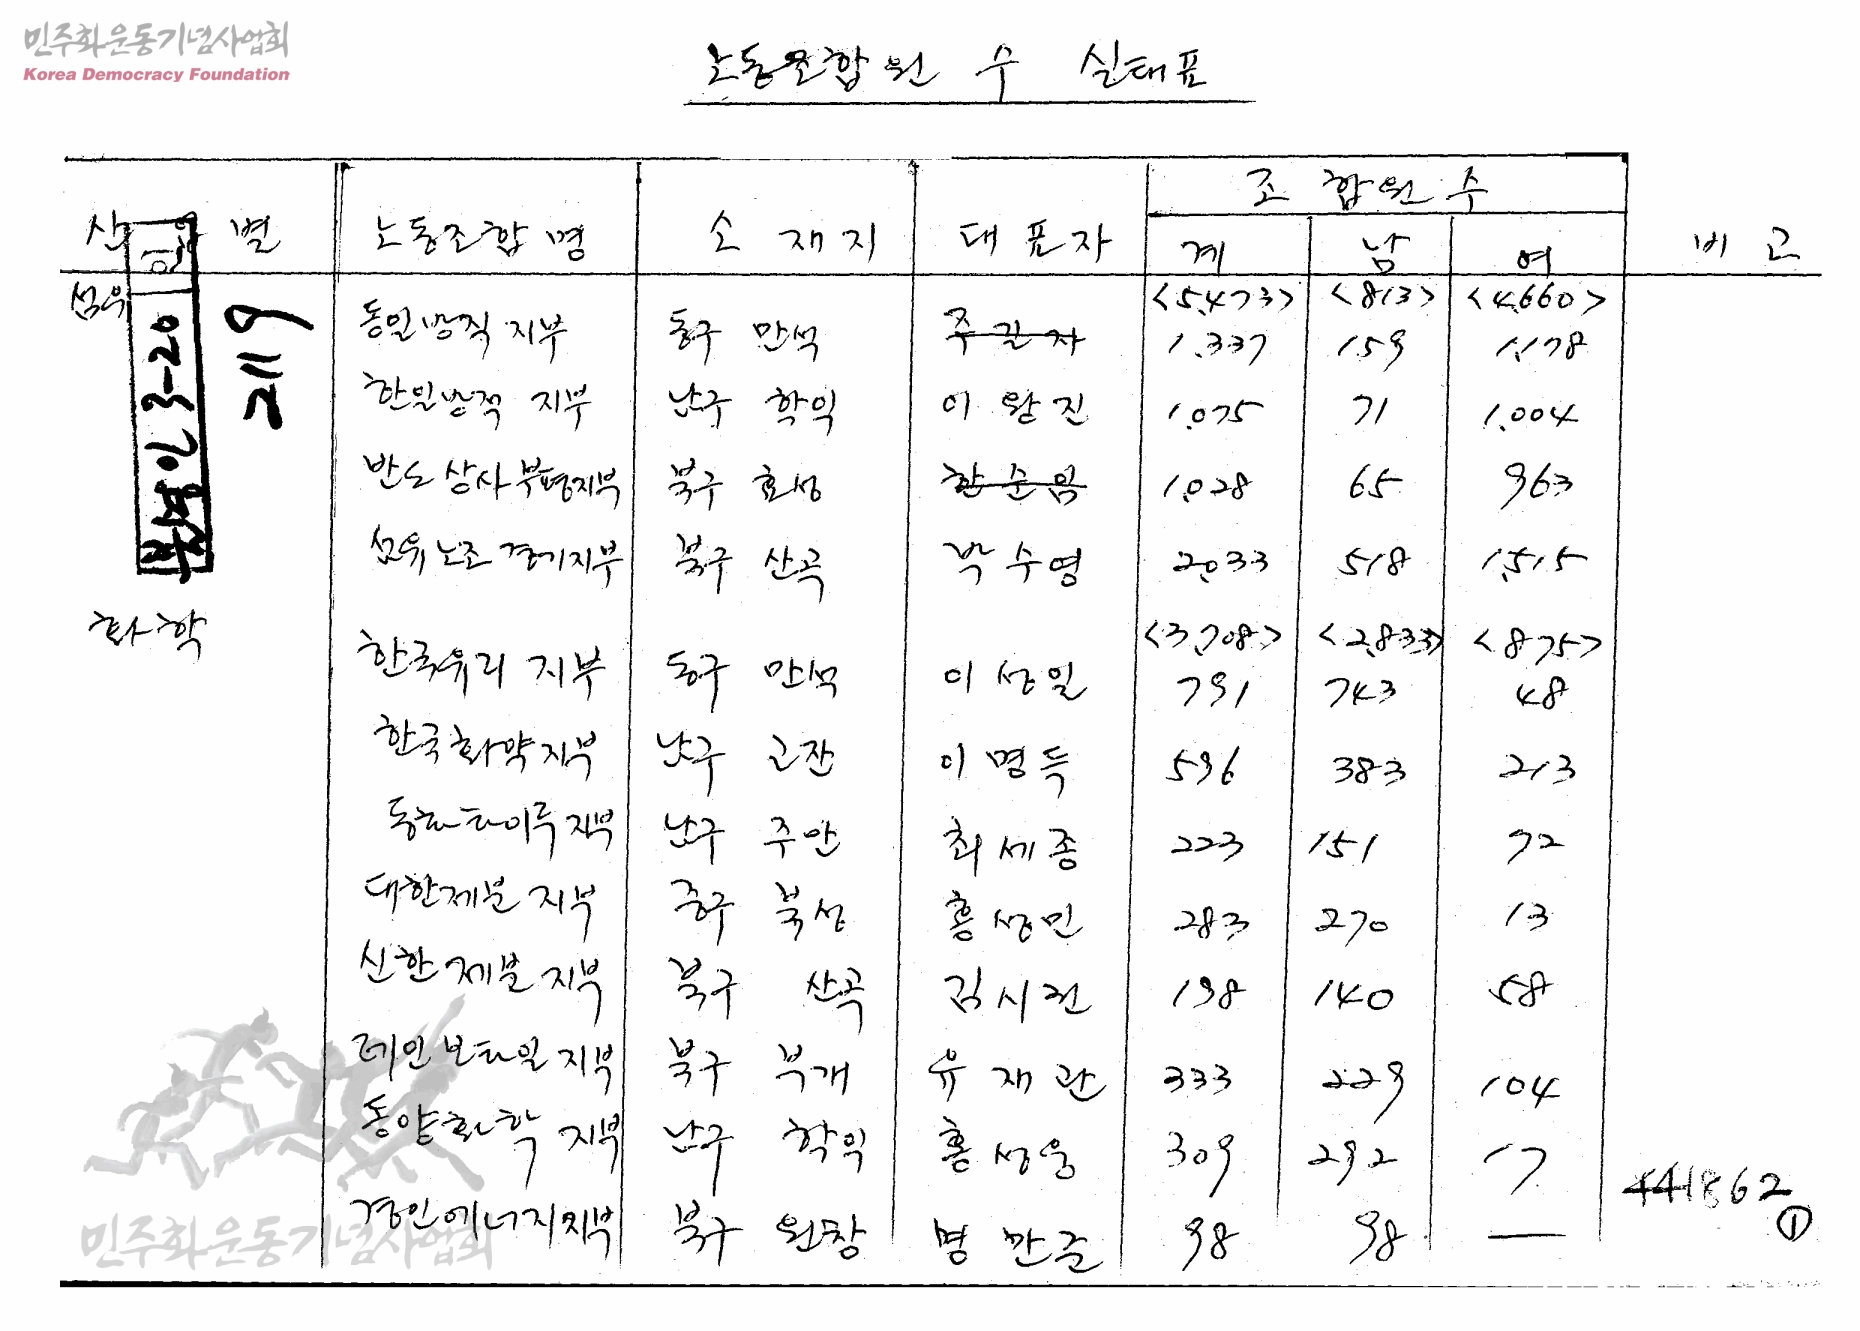 민주화운동기념사업회
Korea Democracy Foundation
노동조합원 수 실태표
산 별 노동조합명 소재지 대표자 조합원수 비고
계 남 여
섬유 <5,473> <813> <4,660>
동일방직 지부 동구 만석 1,337 159 1,178
한일방적 지부 남구 학익 이왕진 1,075 71 1,004
반도상사 부평지부 북구 효성 한순임 1,028 65 963
섬유노조 경기지부 북구 산곡 박수영 2,033 518 1,515
화학 <3,708> <2,833> <875>
한국유리 지부 동구 만석 이성일 791 743 48
한국화약지부 남구 고잔 이명득 596 383 213
동화타이루지부 남구 주안 최세종 223 151 72
대한제분 지부 중구 북성 홍성민 283 270 13
신한제분 지부 북구 산곡 김시전 198 140 58
레인보타일 지부 북구 부개 유재관 333 229 104
동양화학 지부 남구 학익 홍성웅 309 292 17
경인에너지지부 북구 원창 명만근 98 98 —
인 3-20
2119
1862
①
민주화운동기념사업회